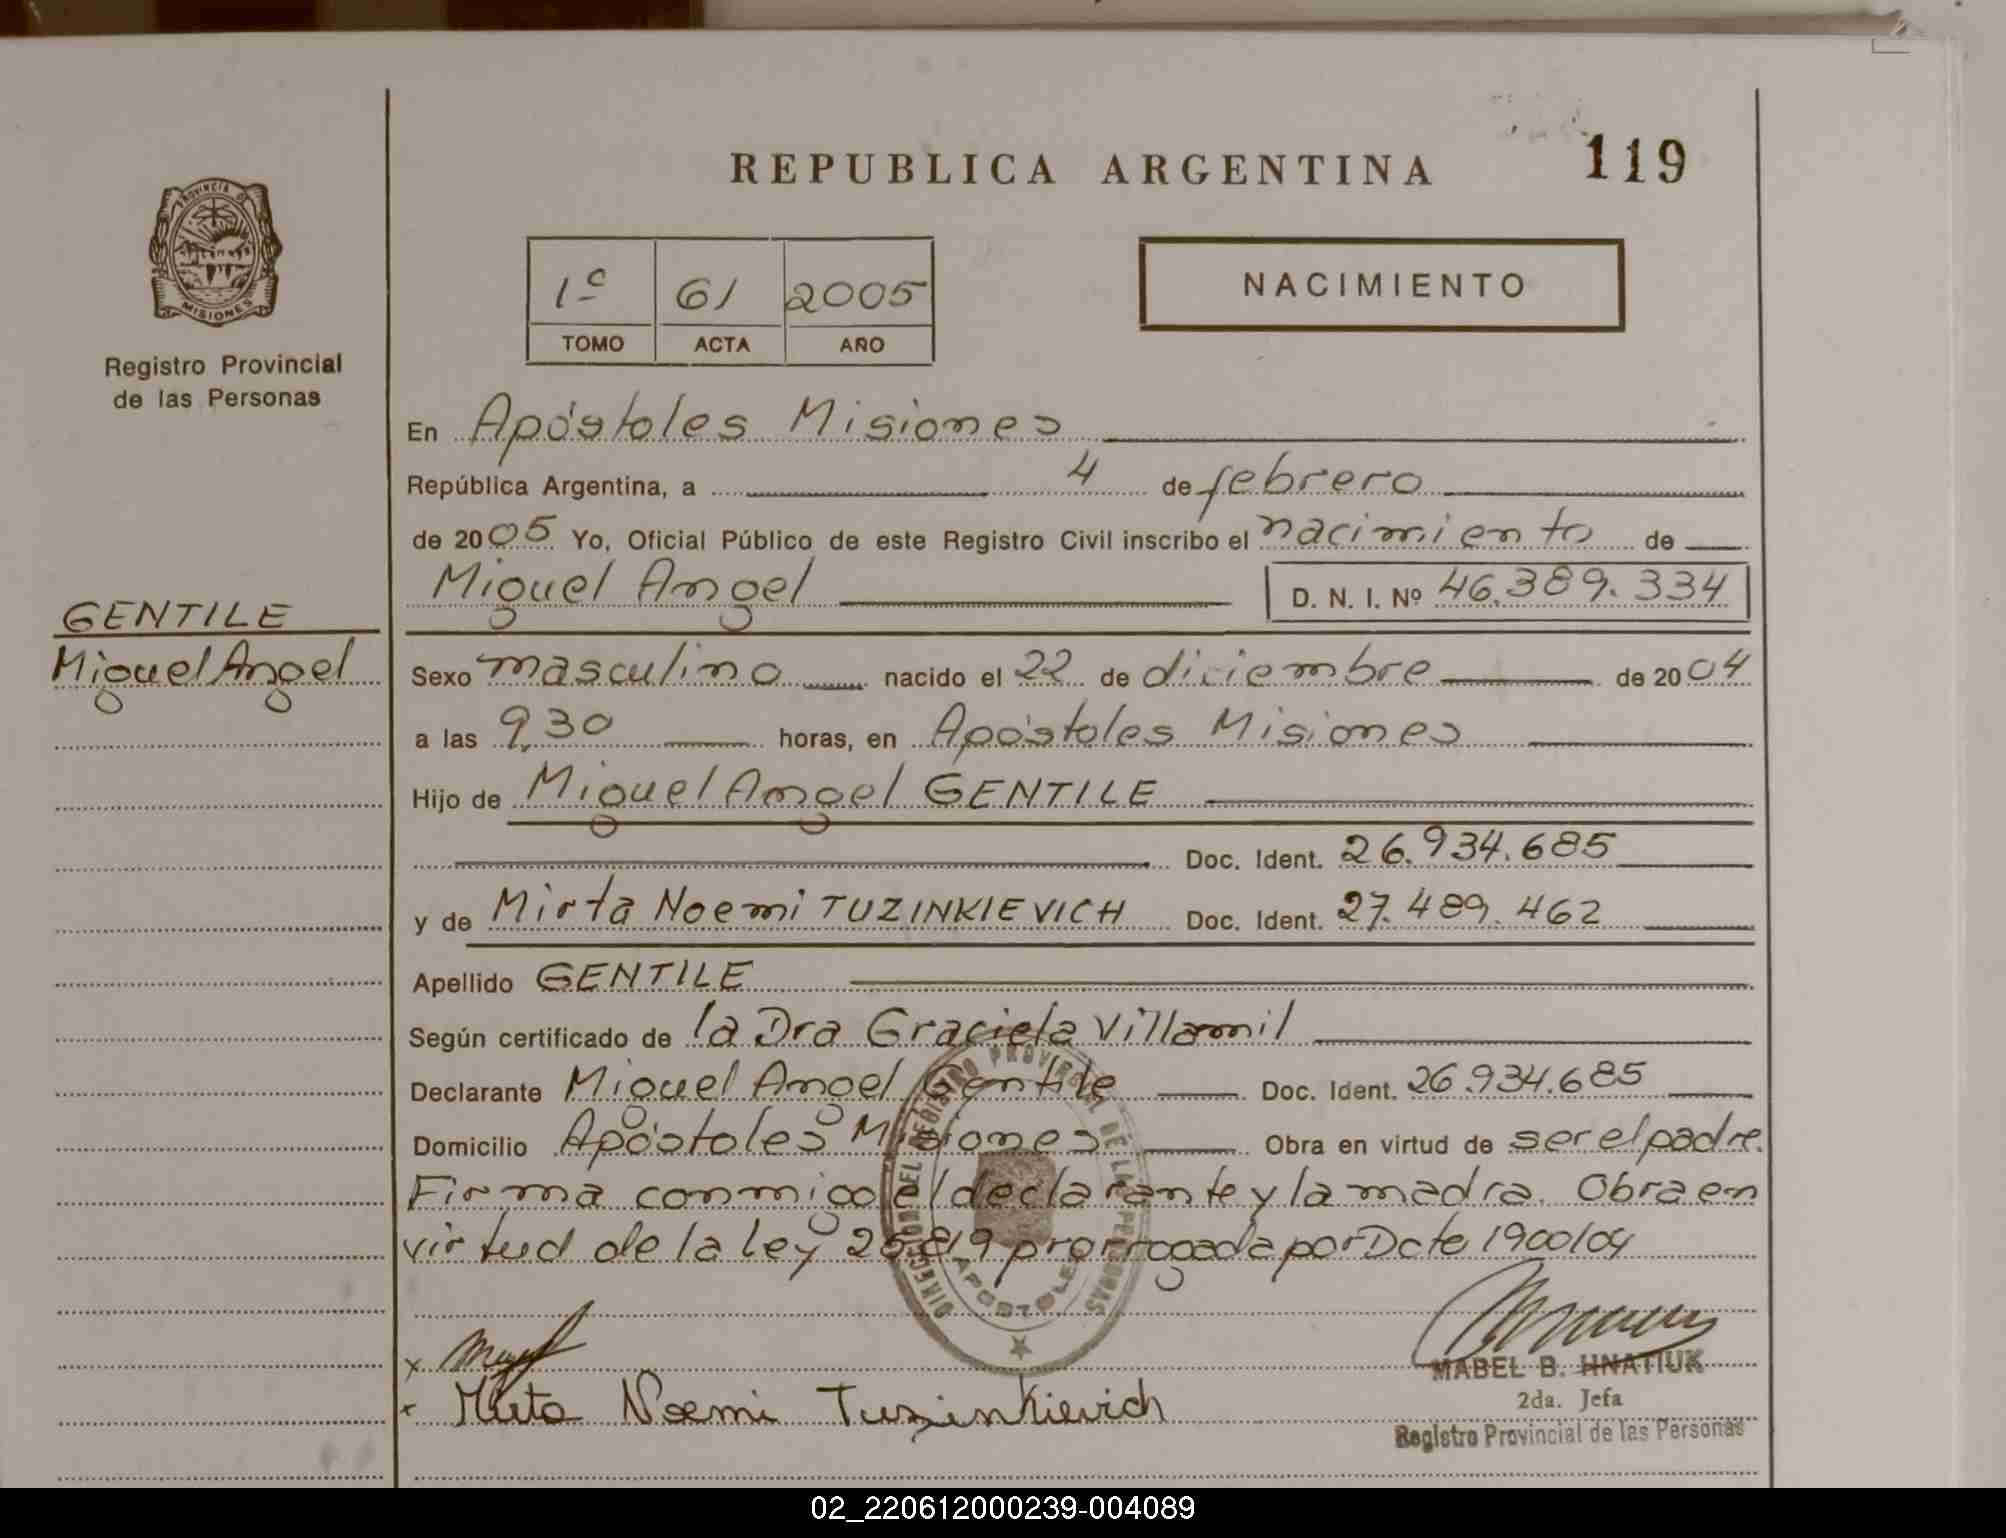 REPUBLICA ARGENTINA
119
PROVINCIA DE
MISIONES
Registro Provincial
de las Personas
1º 61 2005
TOMO ACTA AÑO
NACIMIENTO
En Apóstoles Misiones
República Argentina, a 4 de febrero
de 2005 Yo, Oficial Público de este Registro Civil inscribo el nacimiento de
Miguel Angel D. N. I. Nº 46.389.334
GENTILE
Miguel Angel
Sexo masculino nacido el 22 de diciembre de 2004
a las 9,30 horas, en Apóstoles Misiones
Hijo de Miguel Angel GENTILE
Doc. Ident. 26.934.685
y de Mirta Noemi TUZINKIEVICH Doc. Ident. 27.489.462
Apellido GENTILE
Según certificado de la Dra Graciela Villamil
Declarante Miguel Angel Gentile Doc. Ident. 26.934.685
Domicilio Apóstoles Misiones Obra en virtud de ser el padre.
Firma conmigo el declarante y la madra. Obra en
virtud de la ley 25.819 prorrogada por Dcto 1900/04
DIRECCION DEL REGISTRO PROVINCIAL DE LAS PERSONAS
APOSTOLES
x
x Mirta Noemi Tuzinkievich
MABEL B. HNATIUK
2da. Jefa
Registro Provincial de las Personas
02_220612000239-004089